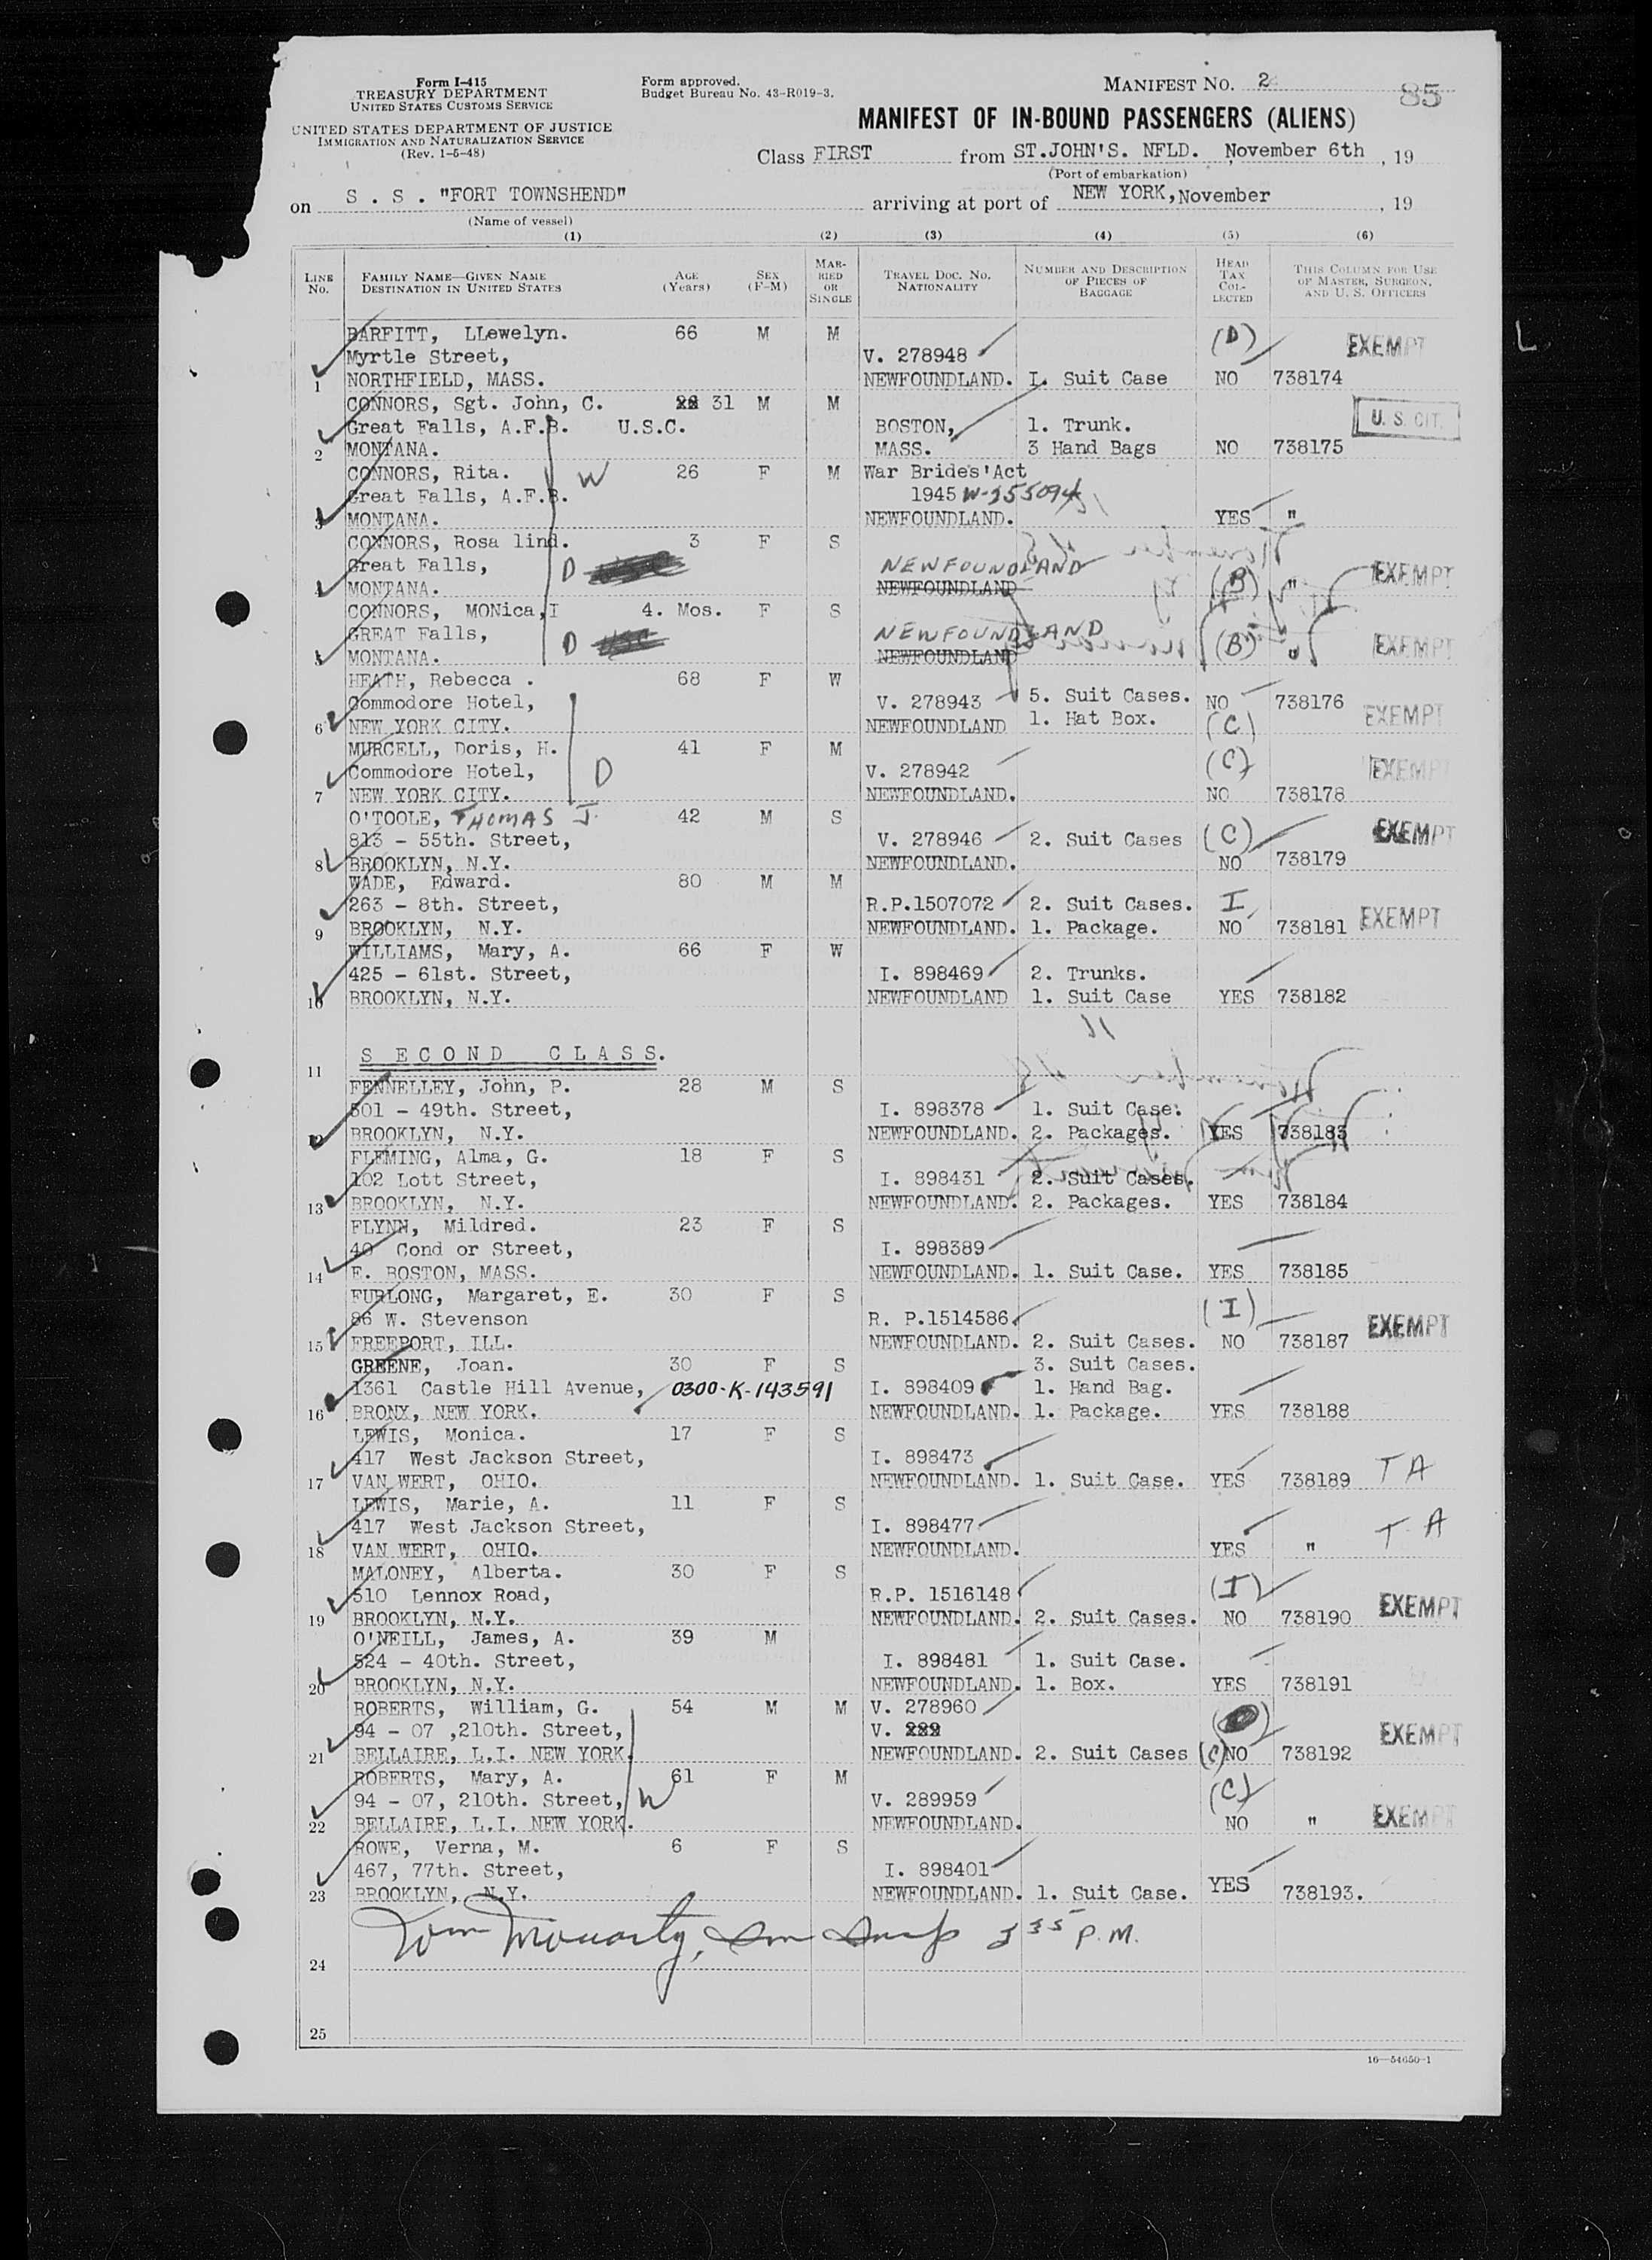 Form I-415
TREASURY DEPARTMENT
UNITED STATES CUSTOMS SERVICE
UNITED STATES DEPARTMENT OF JUSTICE
IMMIGRATION AND NATURALIZATION SERVICE
(Rev. 1-5-48)
Form approved.
Budget Bureau No. 43-R019-3.
MANIFEST NO. 2
85
MANIFEST OF IN-BOUND PASSENGERS (ALIENS)
Class FIRST from ST.JOHN'S. NFLD. , November 6th , 19
(Port of embarkation)
on S . S . "FORT TOWNSHEND" arriving at port of NEW YORK, November , 19
(Name of vessel)
(1) (2) (3) (4) (5) (6)
LINE NO. FAMILY NAME—GIVEN NAME DESTINATION IN UNITED STATES AGE (Years) SEX (F-M) MARRIED OR SINGLE TRAVEL DOC. NO. NATIONALITY NUMBER AND DESCRIPTION OF PIECES OF BAGGAGE HEAD TAX COLLECTED THIS COLUMN FOR USE OF MASTER, SURGEON, AND U. S. OFFICERS
BARFITT, LLewelyn. 66 M M (D) EXEMPT
Myrtle Street, V. 278948
1 NORTHFIELD, MASS. NEWFOUNDLAND. 1. Suit Case NO 738174
CONNORS, Sgt. John, C. 31 M M
Great Falls, A.F.B. U.S.C. BOSTON, 1. Trunk. U. S. CIT.
2 MONTANA. MASS. 3 Hand Bags NO 738175
CONNORS, Rita. W 26 F M War Brides'Act
Great Falls, A.F.B. 1945 W-255094
3 MONTANA. NEWFOUNDLAND. YES "
CONNORS, Rosa lind. 3 F S
Great Falls, D NEWFOUNDLAND EXEMPT
4 MONTANA. NEWFOUNDLAND (B) "
CONNORS, MONica,I 4. Mos. F S
GREAT Falls, D NEWFOUNDLAND (B) EXEMPT
5 MONTANA. NEWFOUNDLAND "
HEATH, Rebecca . 68 F W
Commodore Hotel, V. 278943 5. Suit Cases. NO 738176
6 NEW YORK CITY. NEWFOUNDLAND 1. Hat Box. (C) EXEMPT
MURCELL, Doris, H. 41 F M
Commodore Hotel, D V. 278942 (C) EXEMPT
7 NEW YORK CITY. NEWFOUNDLAND. NO 738178
O'TOOLE, THOMAS J. 42 M S
813 - 55th. Street, V. 278946 2. Suit Cases (C) EXEMPT
8 BROOKLYN, N.Y. NEWFOUNDLAND. NO 738179
WADE, Edward. 80 M M
263 - 8th. Street, R.P.1507072 2. Suit Cases. I
9 BROOKLYN, N.Y. NEWFOUNDLAND. 1. Package. NO 738181 EXEMPT
WILLIAMS, Mary, A. 66 F W
425 - 61st. Street, I. 898469 2. Trunks.
10 BROOKLYN, N.Y. NEWFOUNDLAND 1. Suit Case YES 738182
S E C O N D C L A S S.
11
FENNELLEY, John, P. 28 M S
501 - 49th. Street, I. 898378 1. Suit Case.
12 BROOKLYN, N.Y. NEWFOUNDLAND. 2. Packages. YES 738183
FLEMING, Alma, G. 18 F S
102 Lott Street, I. 898431 2. Suit Cases.
13 BROOKLYN, N.Y. NEWFOUNDLAND. 2. Packages. YES 738184
FLYNN, Mildred. 23 F S
40 Cond or Street, I. 898389
14 E. BOSTON, MASS. NEWFOUNDLAND. 1. Suit Case. YES 738185
FURLONG, Margaret, E. 30 F S (I)
86 W. Stevenson R. P.1514586 EXEMPT
15 FREEPORT, ILL. NEWFOUNDLAND. 2. Suit Cases. NO 738187
GREENE, Joan. 30 F S 3. Suit Cases.
1361 Castle Hill Avenue, 0300-K-143591 I. 898409 1. Hand Bag.
16 BRONX, NEW YORK. NEWFOUNDLAND. 1. Package. YES 738188
LEWIS, Monica. 17 F S
417 West Jackson Street, I. 898473
17 VAN WERT, OHIO. NEWFOUNDLAND. 1. Suit Case. YES 738189 T A
LEWIS, Marie, A. 11 F S
417 West Jackson Street, I. 898477 T A
18 VAN WERT, OHIO. NEWFOUNDLAND. YES "
MALONEY, Alberta. 30 F S (I)
510 Lennox Road, R.P. 1516148 EXEMPT
19 BROOKLYN, N.Y. NEWFOUNDLAND. 2. Suit Cases. NO 738190
O'NEILL, James, A. 39 M
524 - 40th. Street, I. 898481 1. Suit Case.
20 BROOKLYN, N.Y. NEWFOUNDLAND. 1. Box. YES 738191
ROBERTS, William, G. 54 M M V. 278960
94 - 07 ,210th. Street, V. EXEMPT
21 BELLAIRE, L.I. NEW YORK. NEWFOUNDLAND. 2. Suit Cases (C) NO 738192
ROBERTS, Mary, A. 61 F M (C)
94 - 07, 210th. Street, W V. 289959
22 BELLAIRE, L.I. NEW YORK. NEWFOUNDLAND. NO " EXEMPT
ROWE, Verna, M. 6 F S
467, 77th. Street, I. 898401
23 BROOKLYN, N.Y. NEWFOUNDLAND. 1. Suit Case. YES 738193.
Tom Moriarty, Imm Insp 3 35 P.M.
24
25
16—54650-1